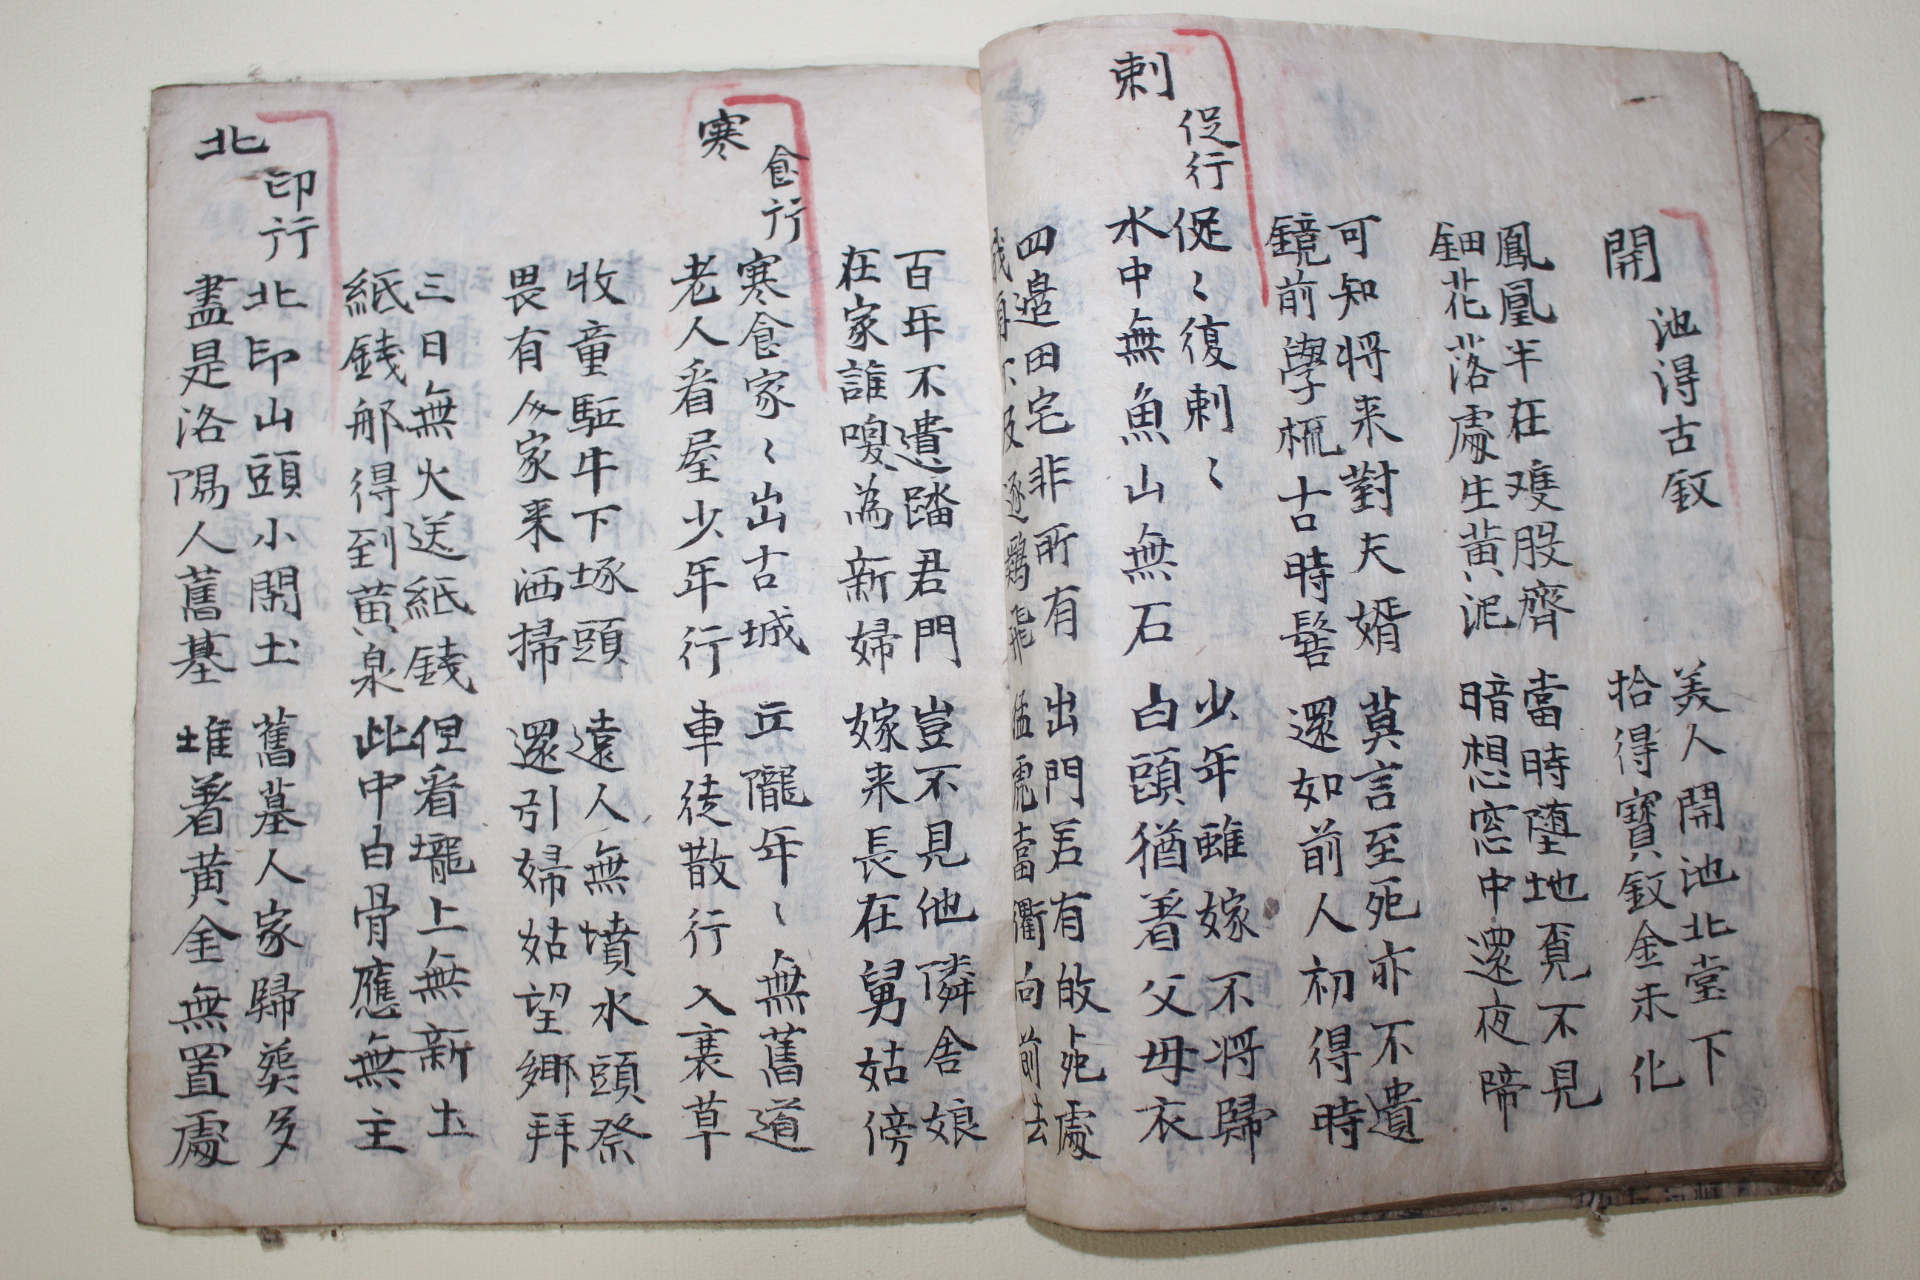 開池淂古釵
美人開池北堂下
拾得寶釵金未化
鳳凰半在雙股齊
鈿花落處生黃泥
當時堕地覔不見
暗想窓中還夜啼
可知将来對夫婿
鏡前學梳古時髻
莫言至死亦不遺
還如前人初得時
刺促行
促〻復刺〻
水中無魚山無石
少年雖嫁不将歸
白頭猶著父母衣
四邉田宅非所有
我身不及逐鷄飛
出門若有攺死處
猛虎當衢向前去
百年不遣踏君門
在家誰嗅為新婦
豈不見他隣舍娘
嫁来長在舅姑傍
寒食行
寒食家〻出古城
老人看屋少年行
丘隴年〻無舊道
車徒散行入衰草
牧童駈牛下塚頭
畏有人家来洒掃
遠人無墳水頭祭
還引婦姑望鄉拜
三日無火送紙錢
紙錢那得到黃泉
但看壠上無新土
此中白骨應無主
北印行
北印山頭小閑土
盡是洛陽人舊墓
舊墓人家歸葬多
堆著黃金無置處